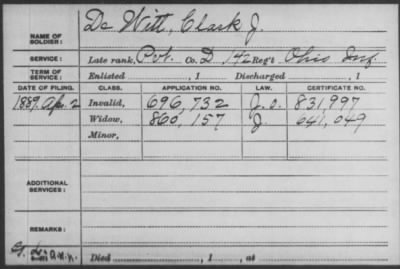 De Witt, Clark J.
NAME OF SOLDIER:
SERVICE: Late rank, Pvt. Co. D, 142 Reg't Ohio Inf.
TERM OF SERVICE: Enlisted , 1 Discharged , 1
DATE OF FILING. CLASS. APPLICATION NO. LAW. CERTIFICATE NO.
1889. Apr. 2 Invalid, 696,732 J.O. 831,997
Widow, 860,157 J. 641,049
Minor,
ADDITIONAL SERVICES:
REMARKS:
Died , 1 , at